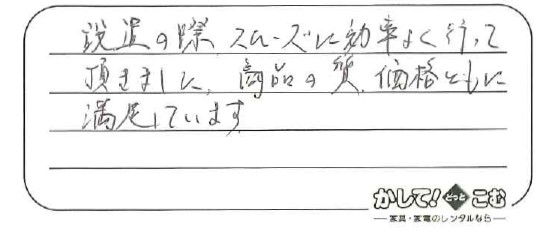 設置の際、スムーズに効率よく行って
頂きました。商品の質、価格ともに
満足しています
かして!どっとこむ
家具・家電のレンタルなら